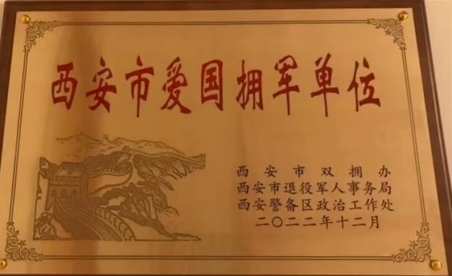 西安市爱国拥军单位
西安市双拥办
西安市退役军人事务局
西安警备区政治工作处
二〇二二年十二月